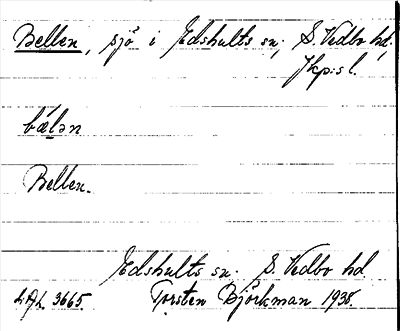 Bellen, sjö i Edshults sn; S. Vedbo hd.
Jkp:s l.
bǽlən
Bellen.
Edshults sn. S. Vedbo hd.
LAL 3665. Torsten Björkman 1938.